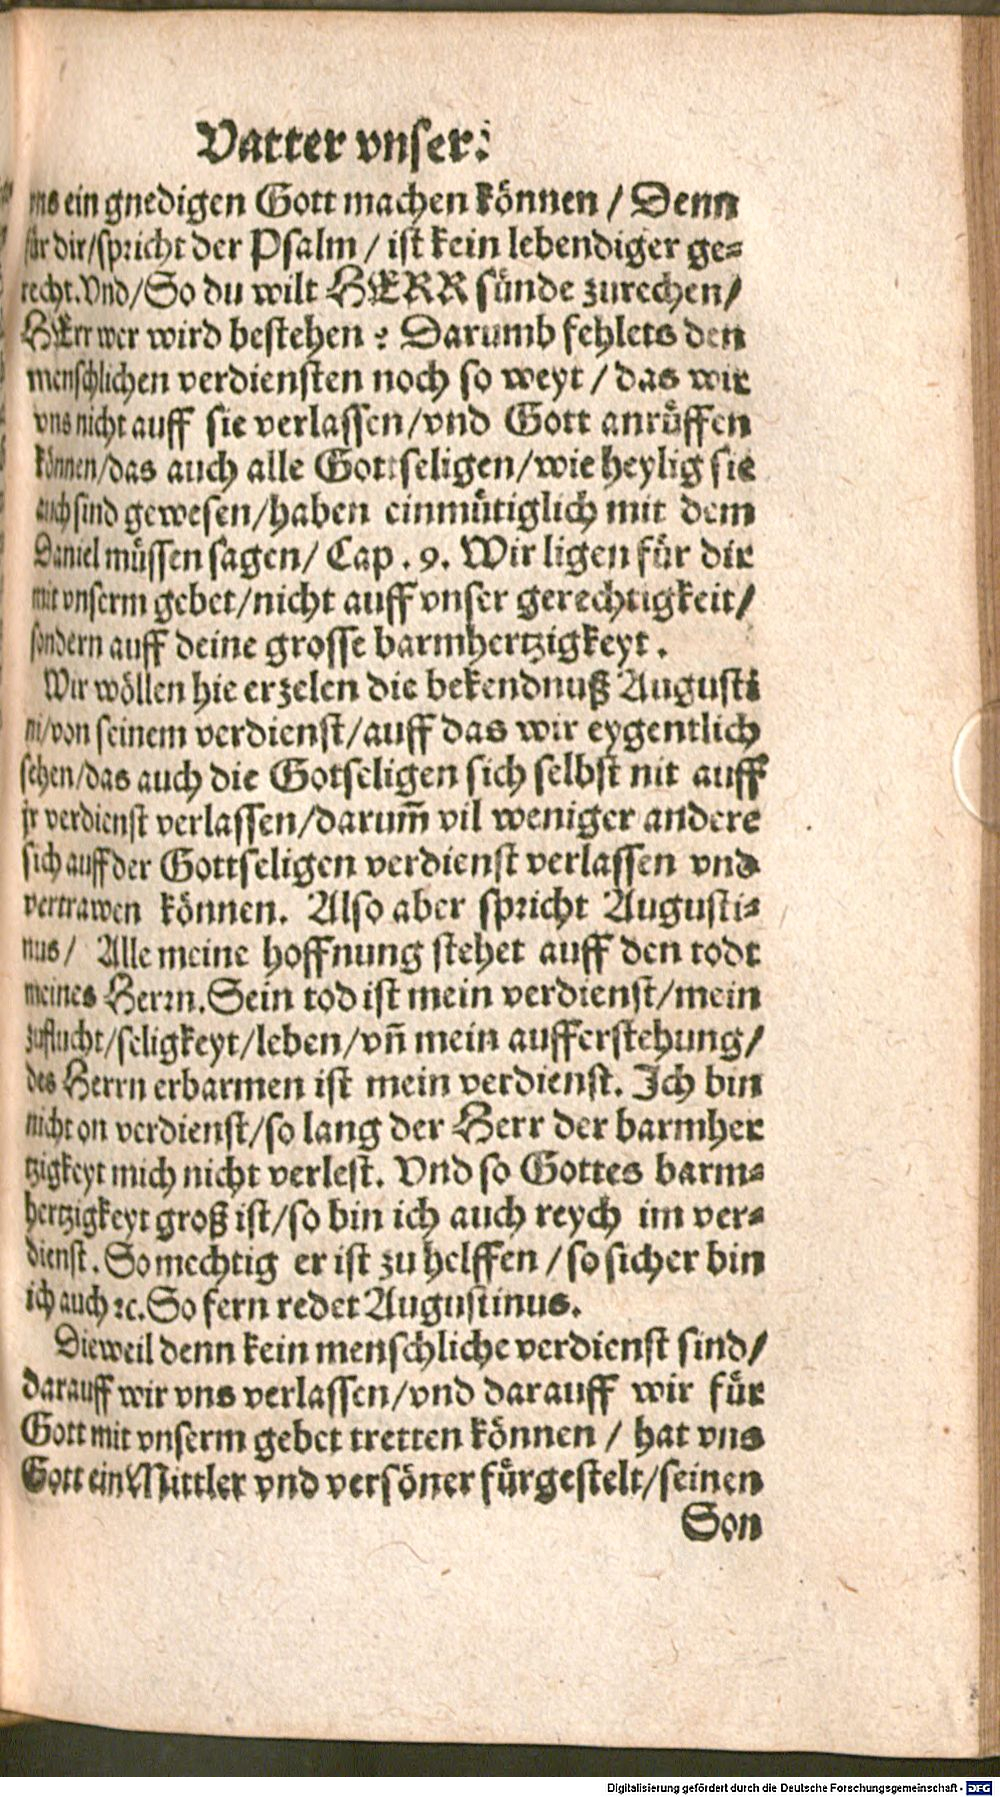 Vatter vnser:
vns ein gnedigen Gott machen können / Denn
für dir/spricht der Psalm / ist kein lebendiger ge⸗
recht. Vnd/So du wilt HERR sünde zurechen/
HErr wer wird bestehen? Darumb fehlets den
menschlichen verdiensten noch so weyt / das wir
vns nicht auff sie verlassen/vnd Gott anrůffen
können/das auch alle Gottseligen/wie heylig sie
auch sind gewesen/haben einmůtiglich mit dem
Daniel müssen sagen/ Cap. 9. Wir ligen für dir
mit vnserm gebet/nicht auff vnser gerechtigkeit/
sondern auff deine grosse barmhertzigkeyt.
Wir wöllen hie erzelen die bekendnuß Augusti
ni/von seinem verdienst/auff das wir eygentlich
sehen/das auch die Gotseligen sich selbst nit auff
jr verdienst verlassen/darum̄ vil weniger andere
sich auff der Gottseligen verdienst verlassen vnd
vertrawen können. Also aber spricht Augusti⸗
nus/ Alle meine hoffnung stehet auff den todt
meines Herrn. Sein tod ist mein verdienst/mein
zuflucht/seligkeyt/leben/vn̄ mein aufferstehung/
des Herrn erbarmen ist mein verdienst. Ich bin
nicht on verdienst/so lang der Herr der barmher
tzigkeyt mich nicht verlest. Vnd so Gottes barm⸗
hertzigkeyt groß ist/so bin ich auch reych im ver⸗
dienst. So mechtig er ist zu helffen /so sicher bin
ich auch ꝛc. So fern redet Augustinus.
Dieweil denn kein menschliche verdienst sind/
darauff wir vns verlassen/vnd darauff wir für
Gott mit vnserm gebet tretten können / hat vns
Gott ein Mittler vnd versöner fürgestelt/seinen
Son
Digitalisierung gefördert durch die Deutsche Forschungsgemeinschaft - DFG